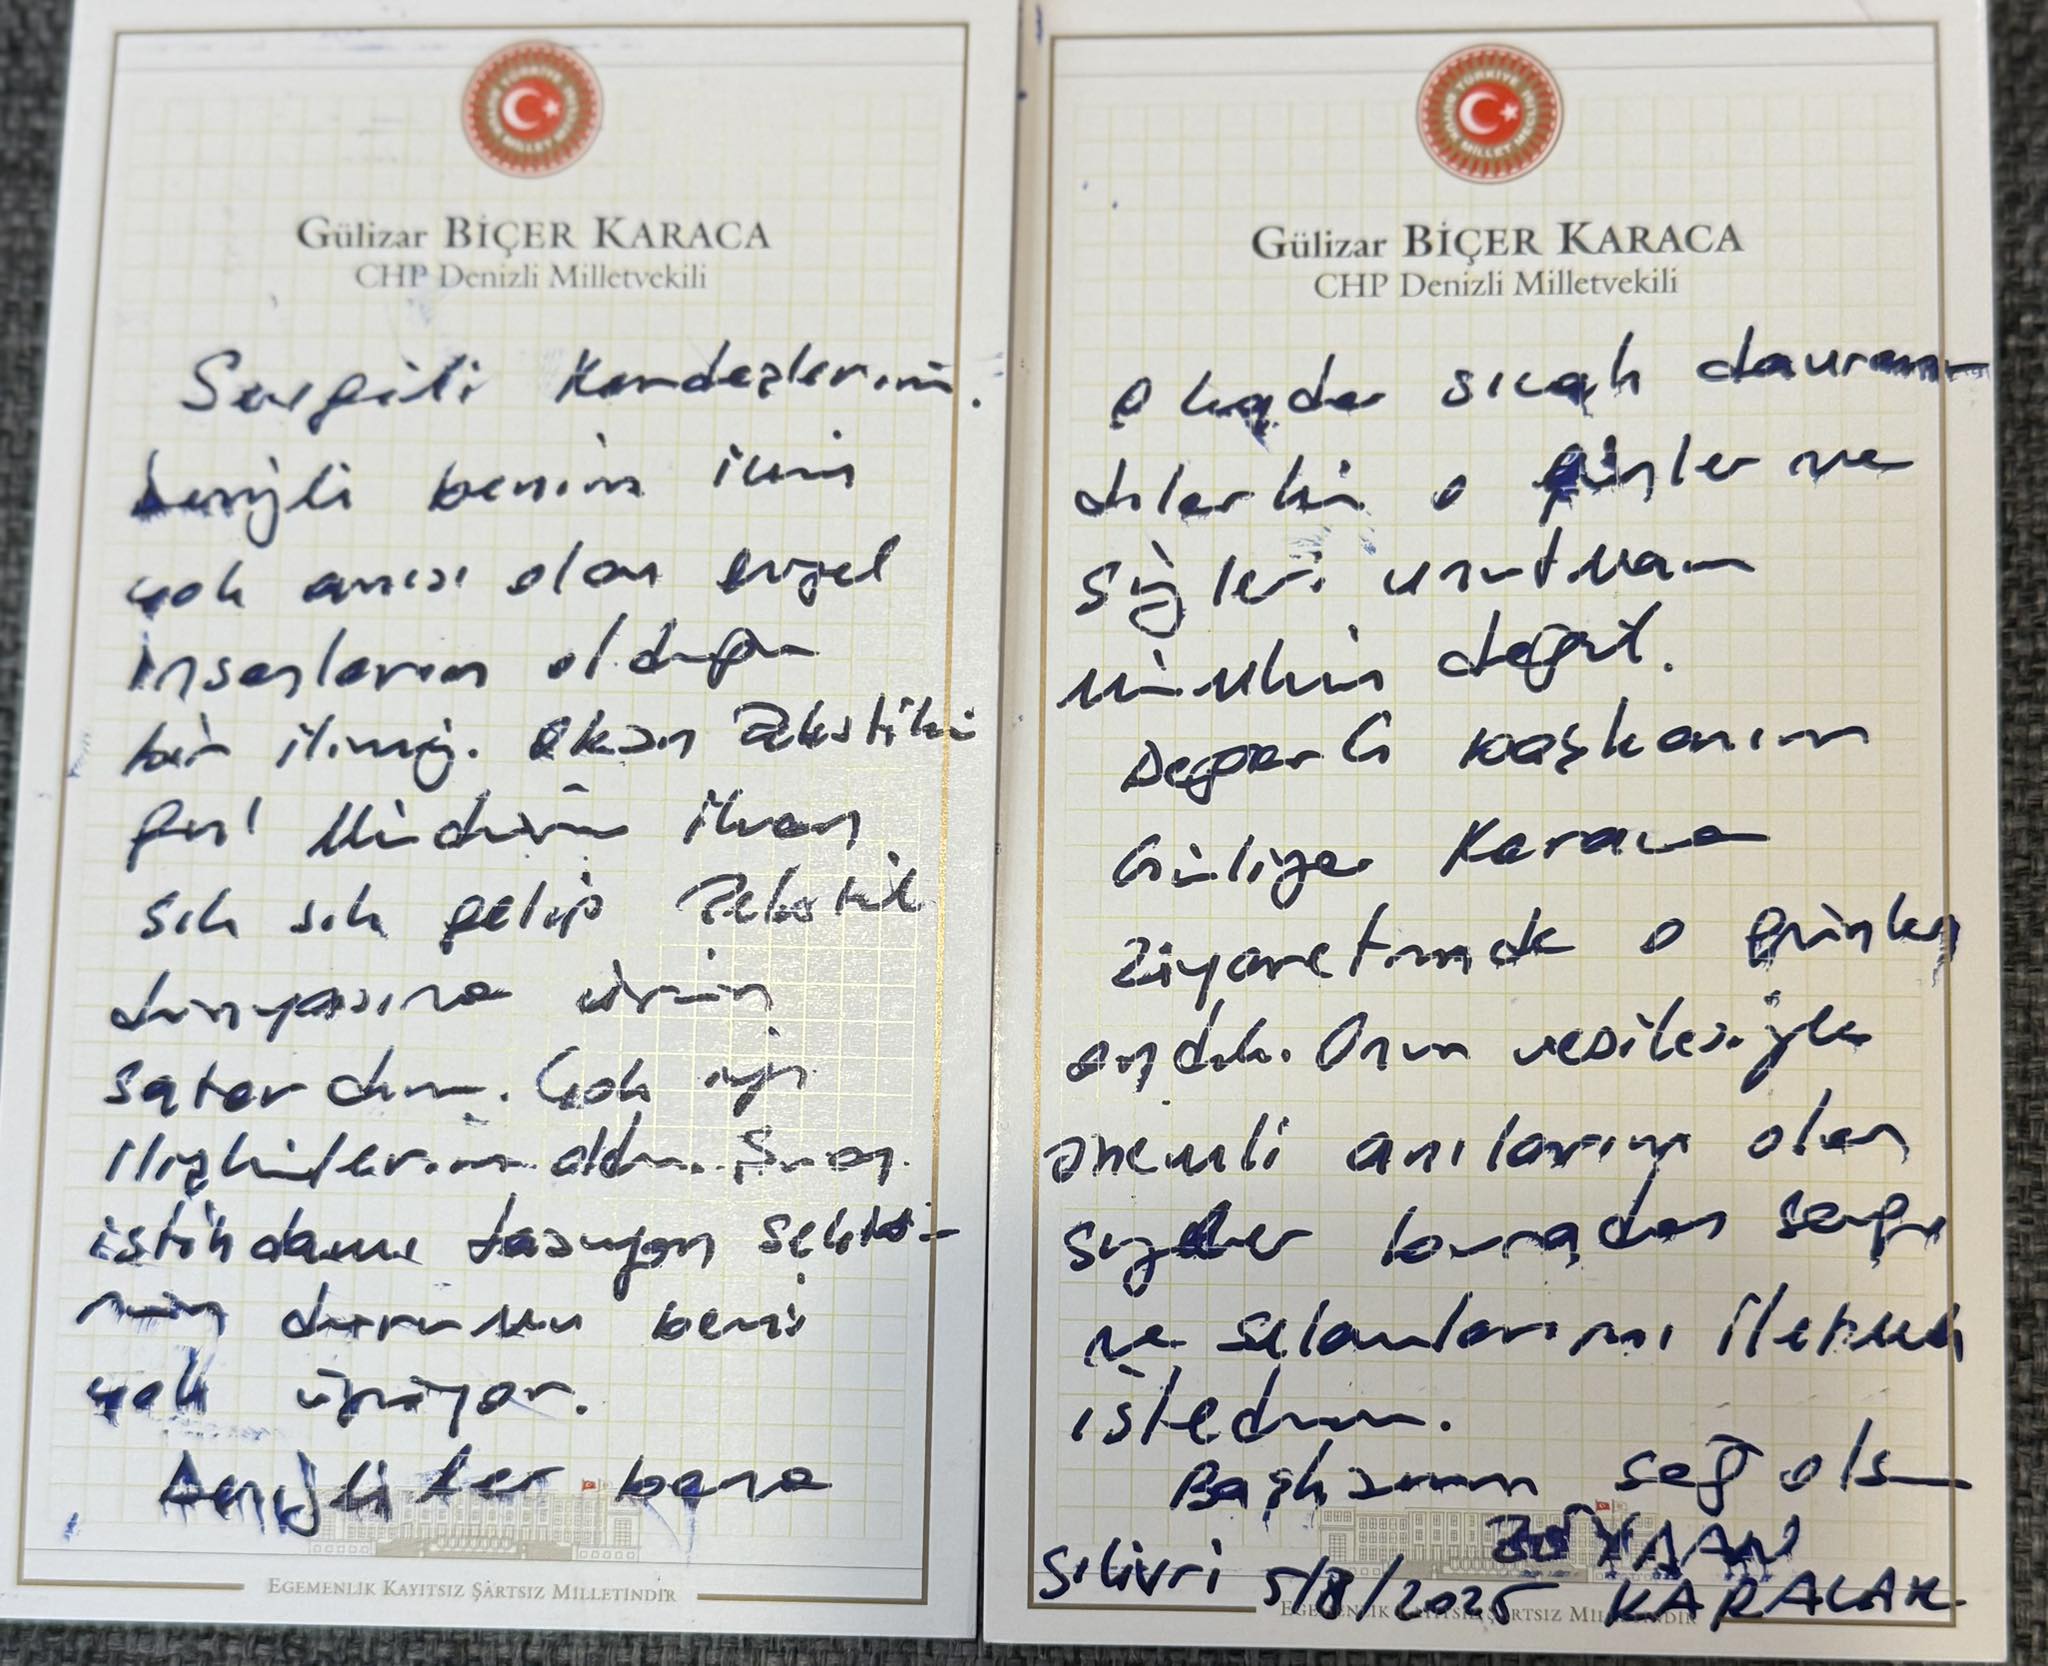 Gülizar BİÇER KARACA
CHP Denizli Milletvekili
Sevgili Kardeşlerim.
Denizli benim için
çok anısı olan güzel
insanların olduğu
bir ilimiz. Tekstilin
Müdürü iken
sık sık gelip Tekstil
dünyasına ürün
satardım. Çok iyi
ilişkilerim oldu. Şuan
istihdamı taşıyan sektö-
rün durumu beni
çok üzüyor.
Denizliler bana
EGEMENLİK KAYITSIZ ŞARTSIZ MİLLETİNDİR
Gülizar BİÇER KARACA
CHP Denizli Milletvekili
o kadar sıcak davran-
dılarki o günler ve
sizleri unutmam
mümkün değil.
Değerli Başkanım
Gülizar Karaca
ziyaretimde o günleri
andık. Onun vesilesiyle
önemli anılarım olan
sizlere buradan sevgi
ve selamlarımı iletmek
istedim.
Başkanım sağ olsun
KARALAR
Silivri 5/8/2025
EGEMENLİK KAYITSIZ ŞARTSIZ MİLLETİNDİR